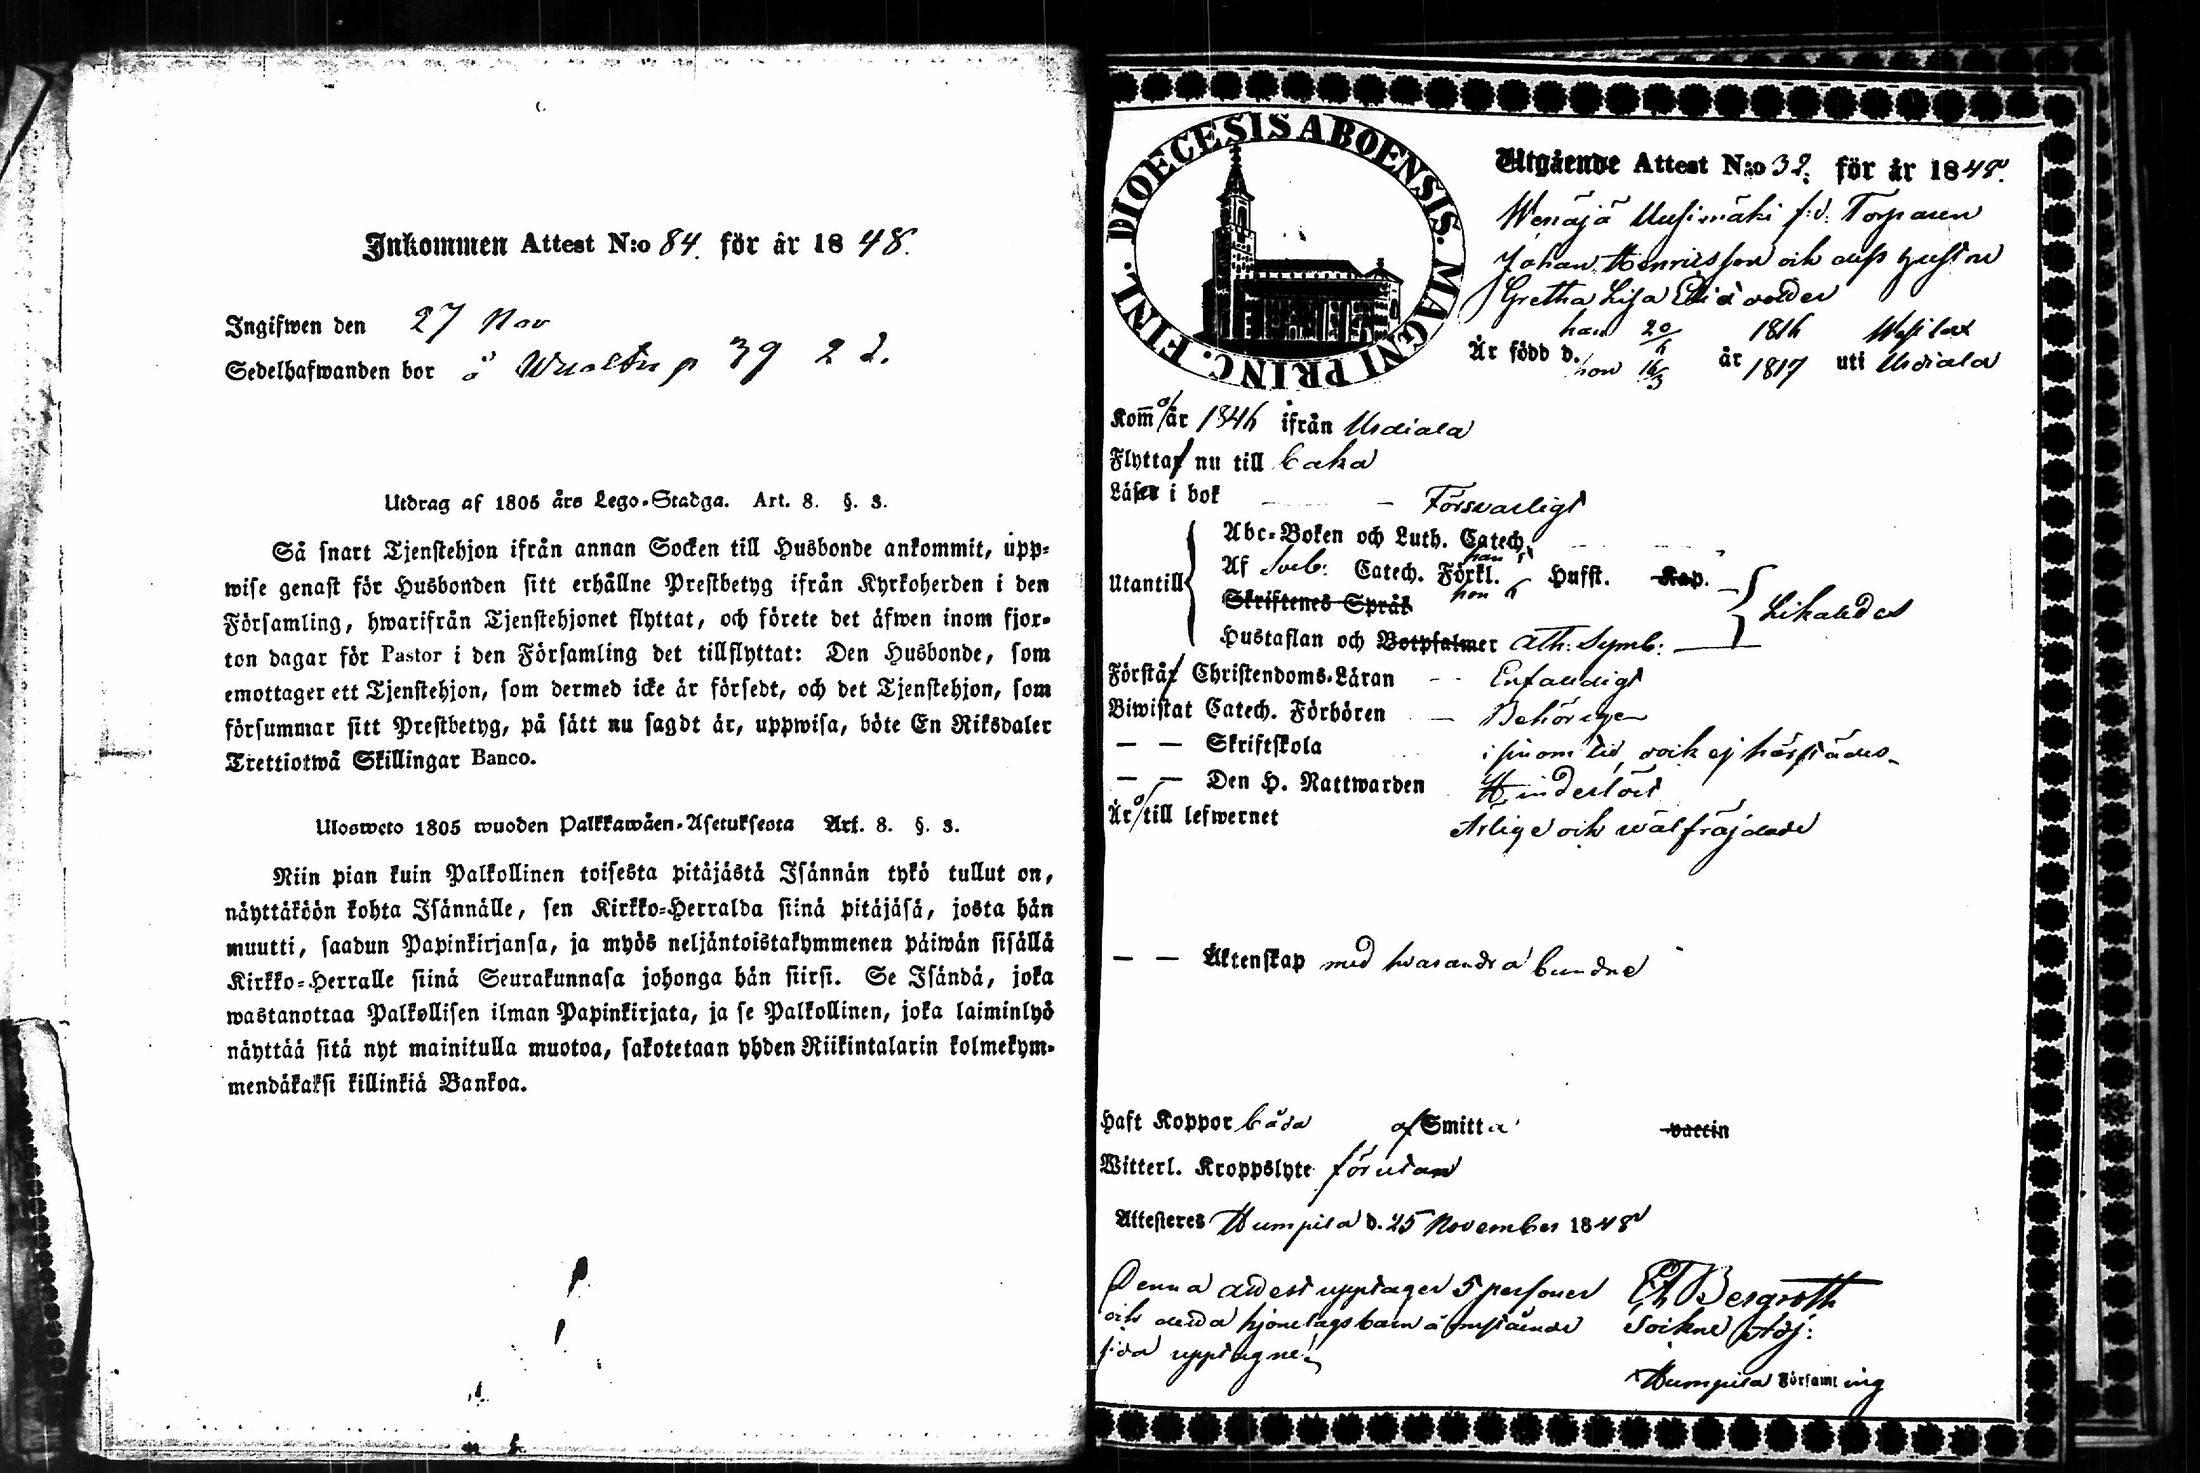 Inkommen Attest N:o 84. för år 1848.
Ingifwen den 27 Nov
Sedelhafwanden bor å 39 2 d.
Utdrag af 1805 års Lego-Stadga. Art. 8. §. 3.
Så snart Tjenstehjon ifrån annan Socken till Husbonde ankommit, upp-
wise genast för Husbonden sitt erhållne Prestbetyg ifrån Kyrkoherden i den
Församling, hwarifrån Tjenstehjonet flyttat, och förete det äfwen inom fjor-
ton dagar för Pastor i den Församling det tillflyttat: Den Husbonde, som
emottager ett Tjenstehjon, som dermed icke är försedt, och det Tjenstehjon, som
försummar sitt Prestbetyg, på sätt nu sagdt är, uppwisa, böte En Riksdaler
Trettiotwå Skillingar Banco.
Ulosweto 1805 wuoden Palkkawäen-Asetuksesta Art. 8. §. 3.
Niin pian kuin Palkollinen toisesta pitäjästä Isännän tykö tullut on,
näyttäköön kohta Isännälle, sen Kirkko-Herralda siinä pitäjäsä, josta hän
muutti, saadun Papinkirjansa, ja myös neljäntoistakymmenen päiwän sisällä
Kirkko-Herralle siinä Seurakunnasa johonga hän siirsi. Se Isändä, joka
wastanottaa Palkollisen ilman Papinkirjata, ja se Palkollinen, joka laiminlyö
näyttää sitä nyt mainitulla muotoa, sakotetaan yhden Riikintalarin kolmekym-
mendäkaksi killinkiä Bankoa.
DIOECESIS ABOENSIS. MAGNI PRINC. FINL.
Utgående Attest N:o 32. för år 1848.
Uusimäki f:d. Torparen
Johan Henriksson och dess hustru
Gretha Lisa
han 20/6 1816
Är född d. år uti
hon 16/3 1817 Urdiala
Kom̄o/är 1846 ifrån Urdiala
Flytta nu till
Läser i bok Försvarligt
Abc-Boken och Luth. Catech.
Utantill Af Sveb: Catech. Förkl. han hon Husst. Kap.
Skriftenes Språk Likaledes
Hustaflan och Botpsalmer Ath: Symb:
Förstå Christendoms-Läran Enfaldigt
Biwistat Catech. Förhören Behörigen
— — Skriftskola i sin tid, och ej härstädes
— — Den H. Nattwarden Hinderlöst
Äro/till lefwernet Ärlige och wälfräjdade
— — Äktenskap med hvarandra bundne
Haft Koppor båda af Smitta vaccin
Witterl. Kroppslyte förutan
Attesteres Humpila d. 25 November 1848
Denna attest upptager 5 personer
och detta hjonelags barn å omstående
sida upptagne.
Bergroth
Sockne Adj:
Humpila Församling